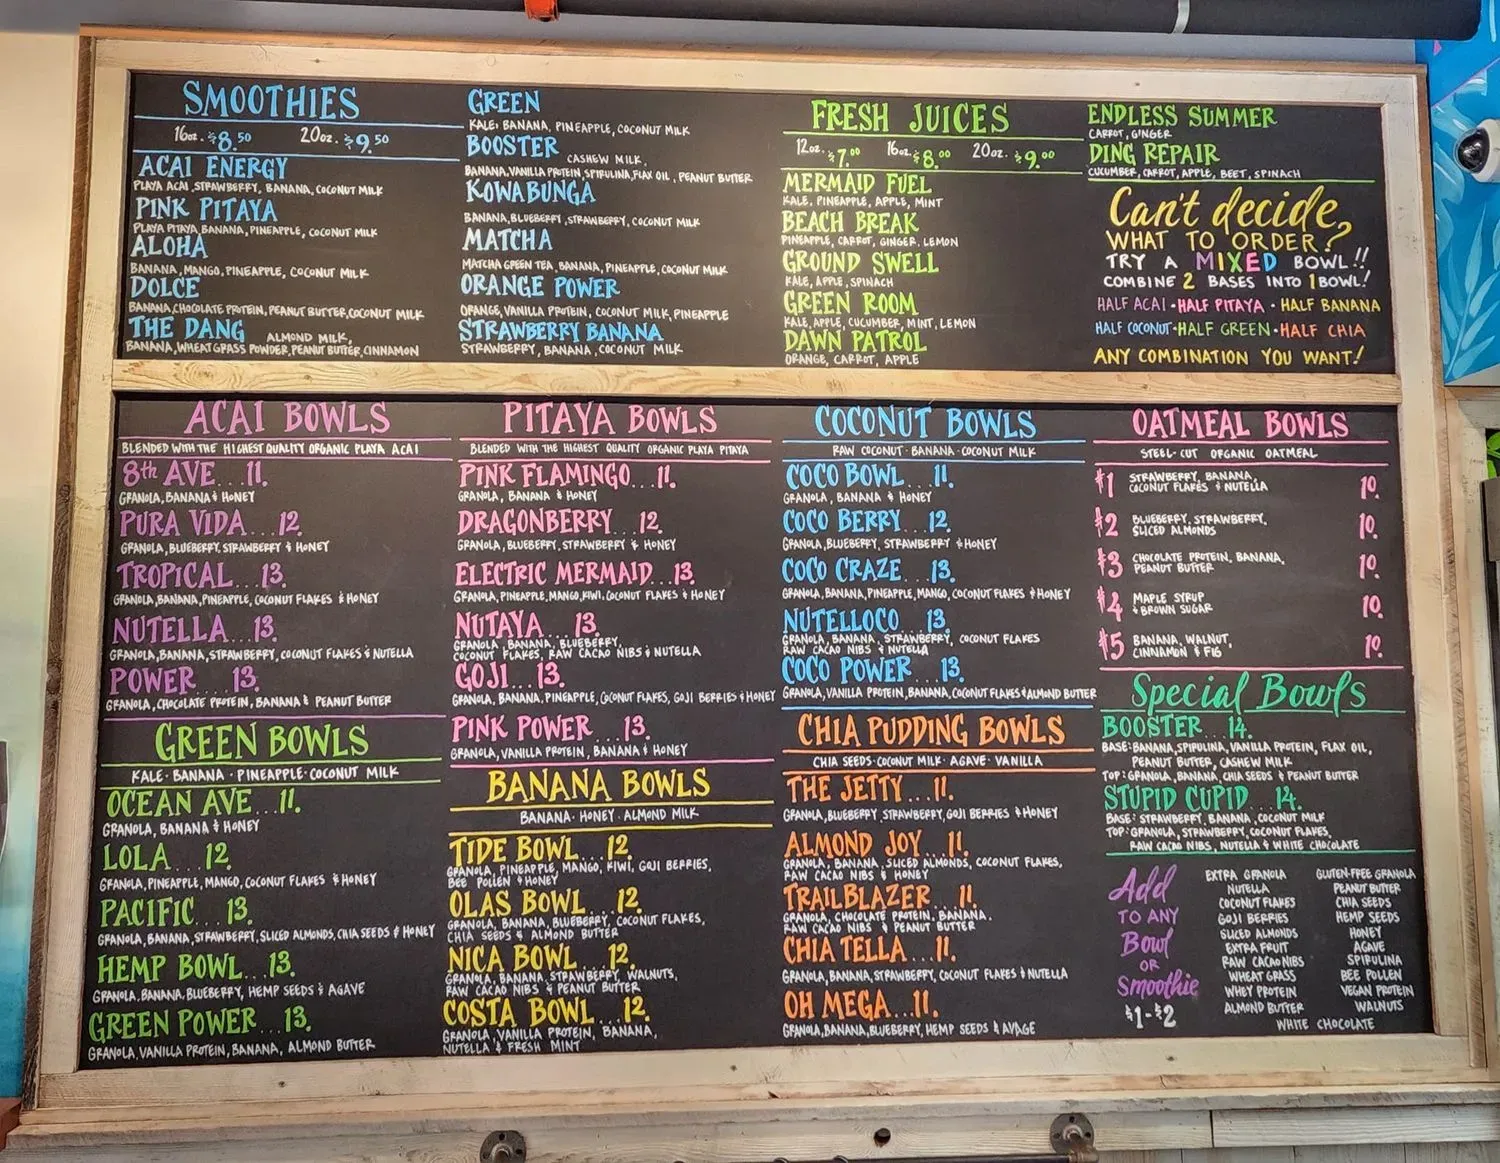 SMOOTHIES
16oz. $8.50 20oz. $9.50
ACAI ENERGY
PLAYA ACAI, STRAWBERRY, BANANA, COCONUT MILK
PINK PITAYA
PLAYA PITAYA, BANANA, PINEAPPLE, COCONUT MILK
ALOHA
BANANA, MANGO, PINEAPPLE, COCONUT MILK
DOLCE
BANANA, CHOCOLATE PROTEIN, PEANUT BUTTER, COCONUT MILK
THE DANG ALMOND MILK,
BANANA, WHEATGRASS POWDER, PEANUT BUTTER, CINNAMON
GREEN
KALE, BANANA, PINEAPPLE, COCONUT MILK
BOOSTER CASHEW MILK,
BANANA, VANILLA PROTEIN, SPIRULINA, FLAX OIL, PEANUT BUTTER
KOWABUNGA
BANANA, BLUEBERRY, STRAWBERRY, COCONUT MILK
MATCHA
MATCHA GREEN TEA, BANANA, PINEAPPLE, COCONUT MILK
ORANGE POWER
ORANGE, VANILLA PROTEIN, COCONUT MILK, PINEAPPLE
STRAWBERRY BANANA
STRAWBERRY, BANANA, COCONUT MILK
FRESH JUICES
12oz. $7.00 16oz. $8.00 20oz. $9.00
MERMAID FUEL
KALE, PINEAPPLE, APPLE, MINT
BEACH BREAK
PINEAPPLE, CARROT, GINGER, LEMON
GROUND SWELL
KALE, APPLE, SPINACH
GREEN ROOM
KALE, APPLE, CUCUMBER, MINT, LEMON
DAWN PATROL
ORANGE, CARROT, APPLE
ENDLESS SUMMER
CARROT, GINGER
DING REPAIR
CUCUMBER, CARROT, APPLE, BEET, SPINACH
Can't decide
WHAT TO ORDER?
TRY A MIXED BOWL!!
COMBINE 2 BASES INTO 1 BOWL!
HALF ACAI · HALF PITAYA · HALF BANANA
HALF COCONUT · HALF GREEN · HALF CHIA
ANY COMBINATION YOU WANT!
ACAI BOWLS
BLENDED WITH THE HIGHEST QUALITY ORGANIC PLAYA ACAI
8th AVE...11.
GRANOLA, BANANA & HONEY
PURA VIDA...12.
GRANOLA, BLUEBERRY, STRAWBERRY & HONEY
TROPICAL...13.
GRANOLA, BANANA, PINEAPPLE, COCONUT FLAKES & HONEY
NUTELLA...13.
GRANOLA, BANANA, STRAWBERRY, COCONUT FLAKES & NUTELLA
POWER...13.
GRANOLA, CHOCOLATE PROTEIN, BANANA & PEANUT BUTTER
GREEN BOWLS
KALE · BANANA · PINEAPPLE · COCONUT MILK
OCEAN AVE...11.
GRANOLA, BANANA & HONEY
LOLA...12.
GRANOLA, PINEAPPLE, MANGO, COCONUT FLAKES & HONEY
PACIFIC...13.
GRANOLA, BANANA, STRAWBERRY, SLICED ALMONDS, CHIA SEEDS & HONEY
HEMP BOWL...13.
GRANOLA, BANANA, BLUEBERRY, HEMP SEEDS & AGAVE
GREEN POWER...13.
GRANOLA, VANILLA PROTEIN, BANANA, ALMOND BUTTER
PITAYA BOWLS
BLENDED WITH THE HIGHEST QUALITY ORGANIC PLAYA PITAYA
PINK FLAMINGO...11.
GRANOLA, BANANA & HONEY
DRAGONBERRY...12.
GRANOLA, BLUEBERRY, STRAWBERRY & HONEY
ELECTRIC MERMAID...13.
GRANOLA, PINEAPPLE, MANGO, KIWI, COCONUT FLAKES & HONEY
NUTAYA...13.
GRANOLA, BANANA, BLUEBERRY,
COCONUT FLAKES, RAW CACAO NIBS & NUTELLA
GOJI...13.
GRANOLA, BANANA, PINEAPPLE, COCONUT FLAKES, GOJI BERRIES & HONEY
PINK POWER...13.
GRANOLA, VANILLA PROTEIN, BANANA & HONEY
BANANA BOWLS
BANANA · HONEY · ALMOND MILK
TIDE BOWL...12.
GRANOLA, PINEAPPLE, MANGO, KIWI, GOJI BERRIES,
BEE POLLEN & HONEY
OLAS BOWL...12.
GRANOLA, BANANA, BLUEBERRY, COCONUT FLAKES,
CHIA SEEDS & ALMOND BUTTER
NICA BOWL...12.
GRANOLA, BANANA, STRAWBERRY, WALNUTS,
RAW CACAO NIBS & PEANUT BUTTER
COSTA BOWL...12.
GRANOLA, VANILLA PROTEIN, BANANA,
NUTELLA & FRESH MINT
COCONUT BOWLS
RAW COCONUT · BANANA · COCONUT MILK
COCO BOWL...11.
GRANOLA, BANANA & HONEY
COCO BERRY...12.
GRANOLA, BLUEBERRY, STRAWBERRY & HONEY
COCO CRAZE...13.
GRANOLA, BANANA, PINEAPPLE, MANGO, COCONUT FLAKES & HONEY
NUTELLOCO...13.
GRANOLA, BANANA, STRAWBERRY, COCONUT FLAKES
RAW CACAO NIBS & NUTELLA
COCO POWER...13.
GRANOLA, VANILLA PROTEIN, BANANA, COCONUT FLAKES & ALMOND BUTTER
CHIA PUDDING BOWLS
CHIA SEEDS · COCONUT MILK · AGAVE · VANILLA
THE JETTY...11.
GRANOLA, BLUEBERRY, STRAWBERRY, GOJI BERRIES & HONEY
ALMOND JOY...11.
GRANOLA, BANANA, SLICED ALMONDS, COCONUT FLAKES,
RAW CACAO NIBS & HONEY
TRAILBLAZER...11.
GRANOLA, CHOCOLATE PROTEIN, BANANA,
RAW CACAO NIBS & PEANUT BUTTER
CHIA TELLA...11.
GRANOLA, BANANA, STRAWBERRY, COCONUT FLAKES & NUTELLA
OH MEGA...11.
GRANOLA, BANANA, BLUEBERRY, HEMP SEEDS & AVAGE
OATMEAL BOWLS
STEEL-CUT ORGANIC OATMEAL
#1 STRAWBERRY, BANANA, 10.
COCONUT FLAKES & NUTELLA
#2 BLUEBERRY, STRAWBERRY, 10.
SLICED ALMONDS
#3 CHOCOLATE PROTEIN, BANANA, 10.
PEANUT BUTTER
#4 MAPLE SYRUP 10.
& BROWN SUGAR
#5 BANANA, WALNUT, 10.
CINNAMON & FIG
Special Bowls
BOOSTER...14.
BASE: BANANA, SPIRULINA, VANILLA PROTEIN, FLAX OIL,
PEANUT BUTTER, CASHEW MILK
TOP: GRANOLA, BANANA, CHIA SEEDS & PEANUT BUTTER
STUPID CUPID...14.
BASE: STRAWBERRY, BANANA, COCONUT MILK
TOP: GRANOLA, STRAWBERRY, COCONUT FLAKES,
RAW CACAO NIBS, NUTELLA & WHITE CHOCOLATE
Add
TO ANY
Bowl
OR
Smoothie
$1-$2
EXTRA GRANOLA
NUTELLA
COCONUT FLAKES
GOJI BERRIES
SLICED ALMONDS
EXTRA FRUIT
RAW CACAO NIBS
WHEAT GRASS
WHEY PROTEIN
ALMOND BUTTER
GLUTEN-FREE GRANOLA
PEANUT BUTTER
CHIA SEEDS
HEMP SEEDS
HONEY
AGAVE
SPIRULINA
BEE POLLEN
VEGAN PROTEIN
WALNUTS
WHITE CHOCOLATE